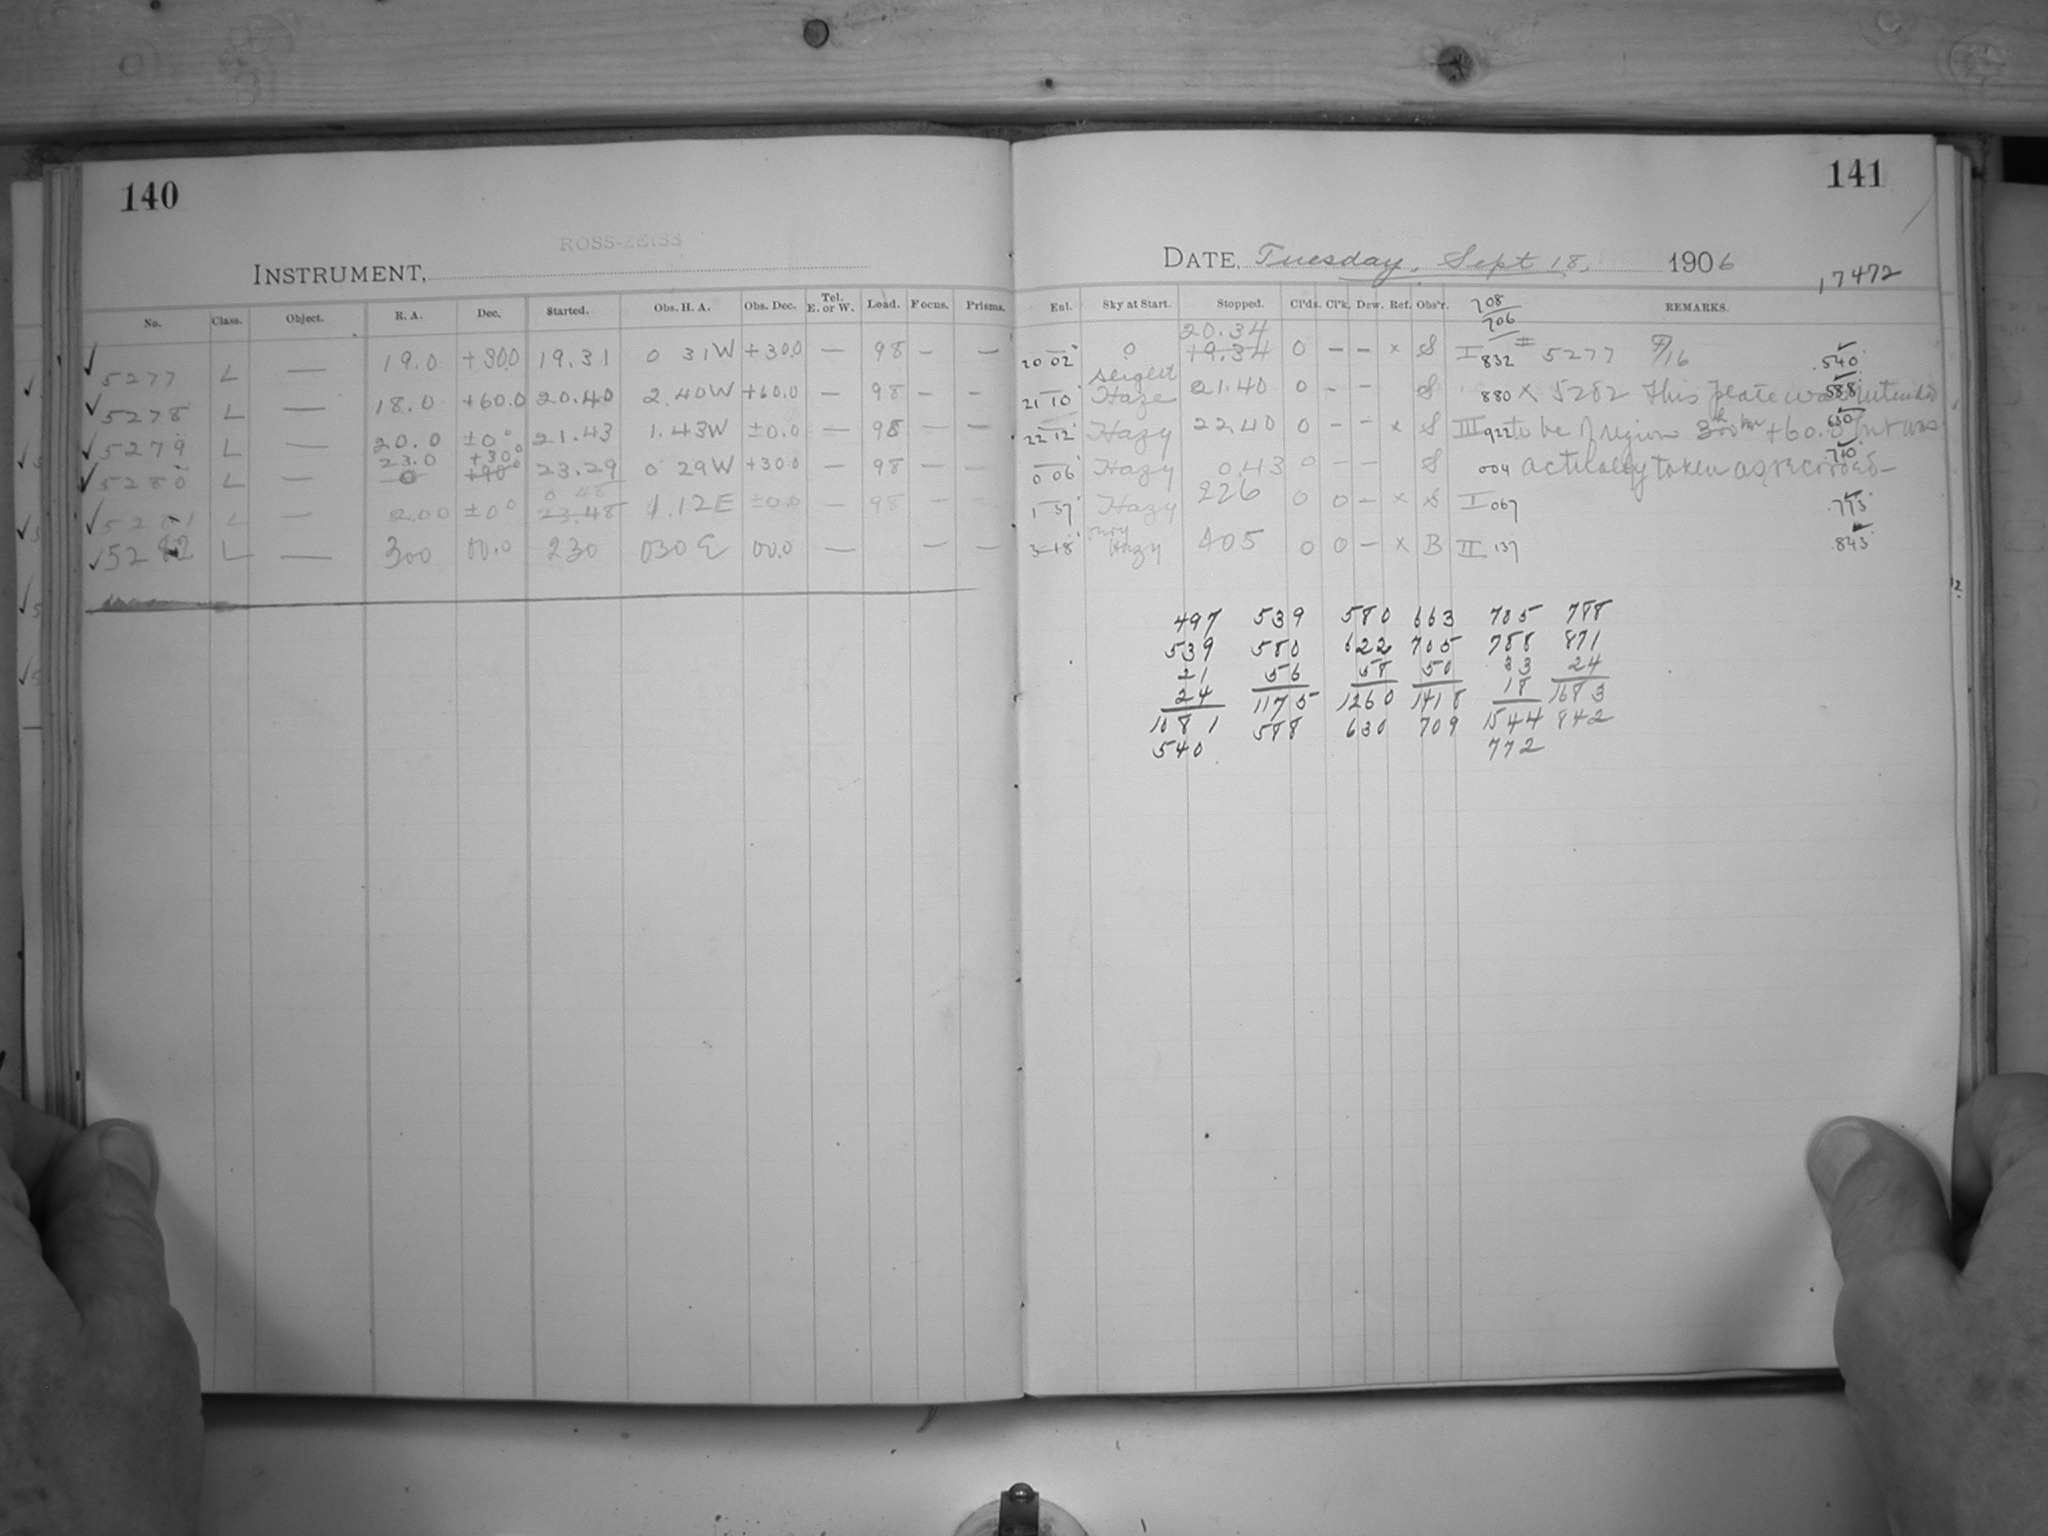 140
ROSS-ZEISS
INSTRUMENT,
No. Class. Object. R. A. Dec. Started. Obs. H. A. Obs. Dec. Tel. E. or W. Load. Focus. Prisms.
✓ 5277 L — 19.0 +30.0 19.31 0 31W +30.0 — 98 — —
✓ 5278 L — 18.0 +60.0 20.40 2.40W +60.0 — 98 — —
✓ 5279 L — 20.0 ±0° 21.43 1.43W ±0.0 — 98 — —
23.0 +30°
✓ 5280 L — 0 +90° 23.29 0 29W +30.0 — 98 — —
0 48
✓ 5281 L — 2.00 ±0° 23.48 1.12E ±0.0 — 98 — —
✓ 5282 L — 300 00.0 230 030 E 00.0 — — —
141
DATE, Tuesday, Sept 18, 1906
17472
Enl. Sky at Start. Stopped. Cl'ds. Cl'k. Dew. Ref. Obs'r. REMARKS.
708
706
20.34
20 02 0 19.34 0 — — x S I 832 # 5277 F/16 .540
21 10 Slight Haze 21.40 0 — — S 880 x 5282 This plate was intended 588
22 12 Hazy 22 40 0 — — x S III 922 to be of region +60.0 but was 630
0 06 Hazy 0.43 0 — — S 004 actually taken as recorded — 710
1 37 Hazy 226 0 0 — x S I 067 .773
3 18 Hazy 405 0 0 — x B II 137 .843
497 539 580 663 705 788
539 580 622 705 788 871
21 56 58 50 33 24
24 1175 1260 1418 18 1683
1081 588 630 709 1544 842
540 772